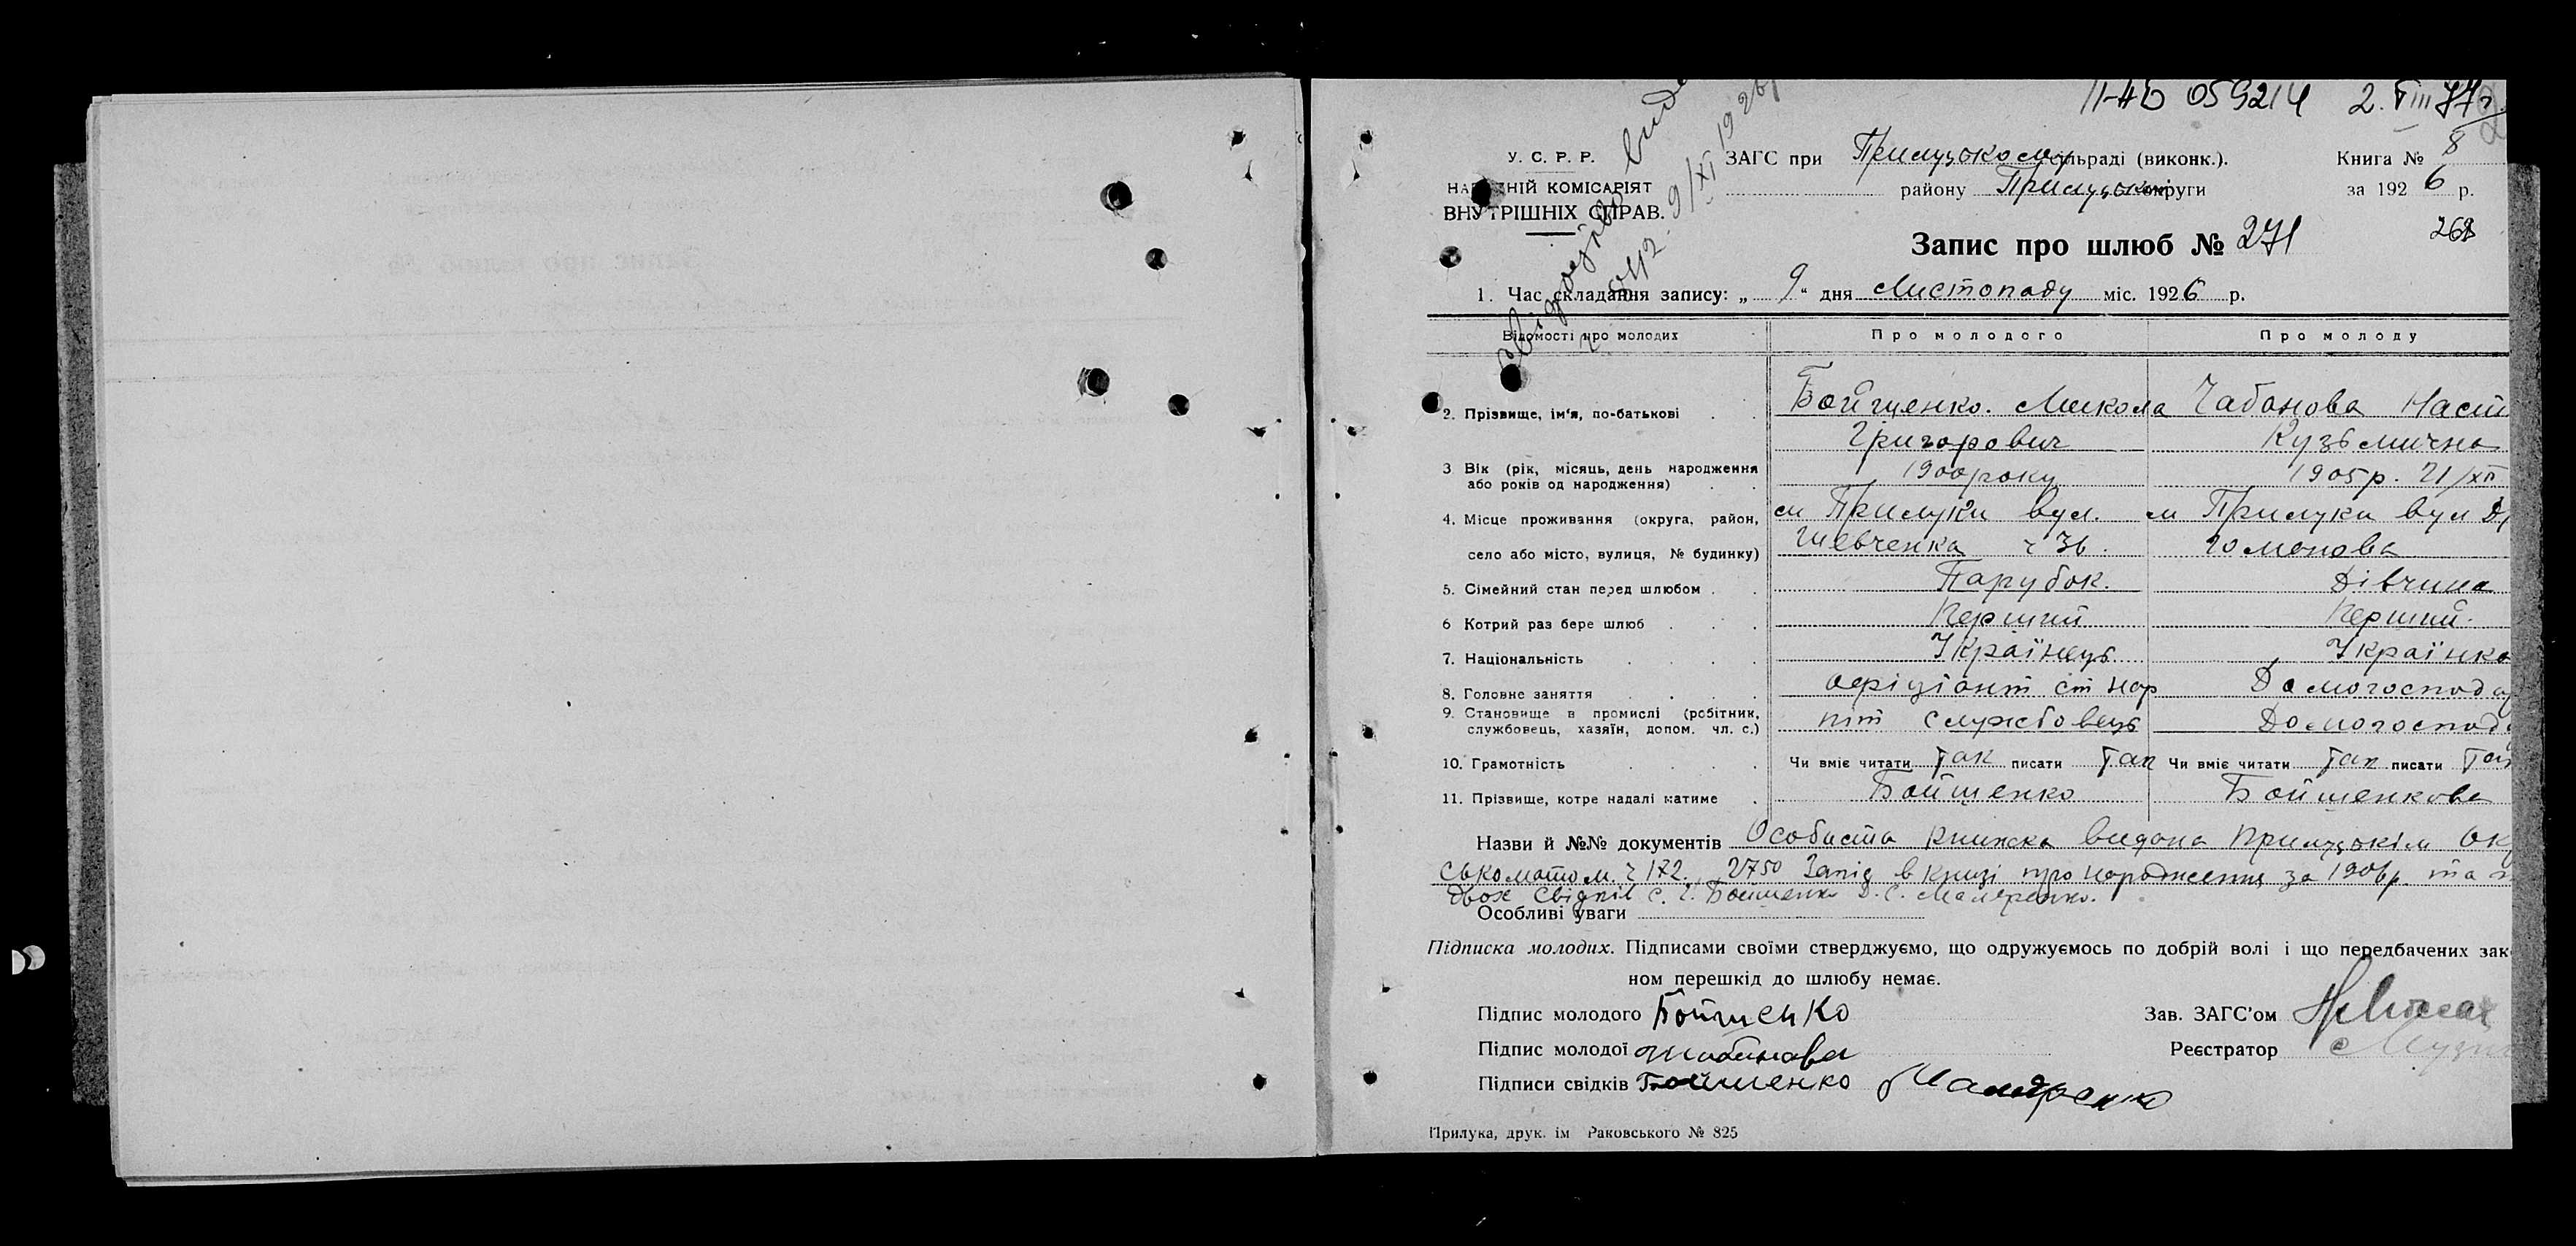 II-АЬ 059214 2.VIII 77г.
У. С. Р. Р.
НАРОДНІЙ КОМІСАРІЯТ
ВНУТРІШНІХ СПРАВ.
ЗАГС при Прилуцькому сільраді (виконк.).
району Прилуцької округи
Книга № 8
за 1926 р.
Свідоцтво видано
9/XI 1926р
Запис про шлюб № 271
268
1. Час складання запису: „ 9 " дня Листопаду міс. 1926 р.
Відомості про молодих Про молодого Про молоду
2. Прізвище, ім'я, по-батькові Бойщенко. Микола Чабанова Наст
Григорович Кузьмична
3 Вік (рік, місяць, день народження 1900 року 1905р. 21/XII
або років од народження)
4. Місце проживання (округа, район, м Прилуки вул. м Прилуки вул
село або місто, вулиця, № будинку) Шевченка ч 36. гоманова
5. Сімейний стан перед шлюбом Парубок. Дівчина
6 Котрий раз бере шлюб Перший Перший.
7. Національність Українець Українка
8. Головне заняття офіціант ст нар Домогоспода
9. Становище в промислі (робітник, пит службовець Домогоспода
службовець, хазяїн, допом. чл. с.)
10. Грамотність Чи вміє читати Так писати Так Чи вміє читати Так писати Так
11. Прізвище, котре надалі матиме Бойшенко Бойшенкова
Назви й №№ документів Особиста книжка видана Прилуцькім Ок
ськоматом. ч 172. 2750 Запис в книзі про народження за 1906р. та
двох свідків С. Г. Бойшенко Д. С. Маляренко.
Особливі уваги
Підписка молодих. Підписами своїми стверджуємо, що одружуємось по добрій волі і що передбачених зак
ном перешкід до шлюбу немає.
Підпис молодого Бойшенко
Зав. ЗАГС'ом
Підпис молодої Чабанова
Реєстратор
Підписи свідків Бойшенко Маляренко
Прилука, друк. ім Раковського № 825